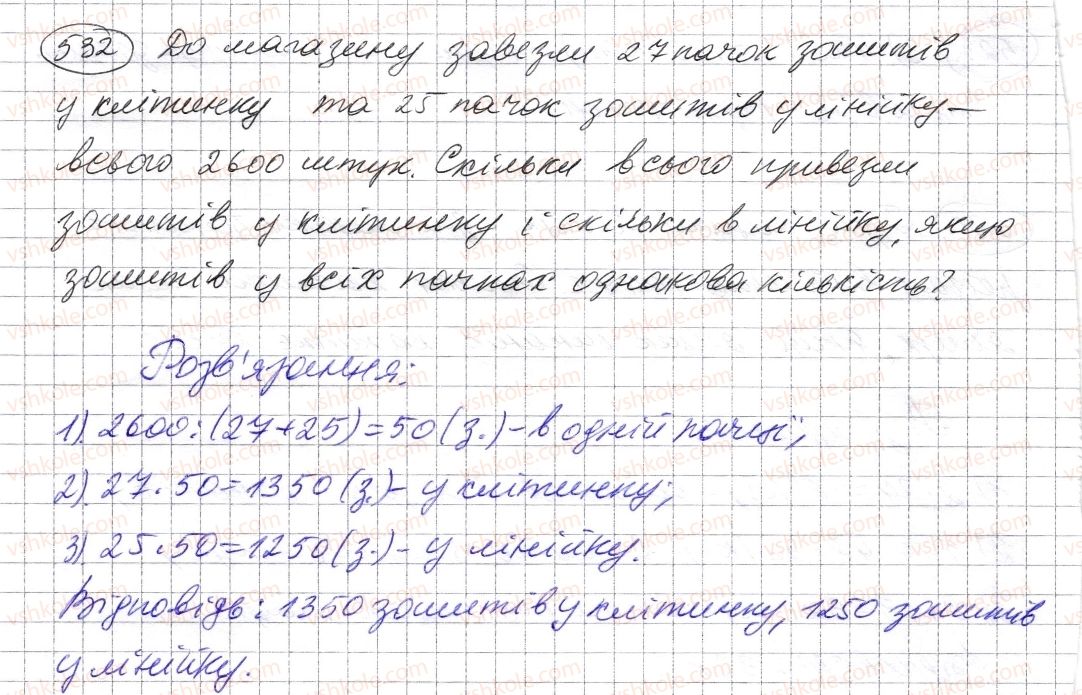 532 До магазину завезли 27 пачок зошитів
у клітинку та 25 пачок зошитів у лінійку —
всього 2600 штук. Скільки всього привезли
зошитів у клітинку і скільки в лінійку, якщо
зошитів у всіх пачках однакова кількість?
Розв'язання:
1). 2600 : (27+25) = 50 (з.) - в одній пачці;
2). 27 · 50 = 1350 (з.) - у клітинку;
3). 25 · 50 = 1250 (з.) - у лінійку.
Відповідь: 1350 зошитів у клітинку, 1250 зошитів
у лінійку.